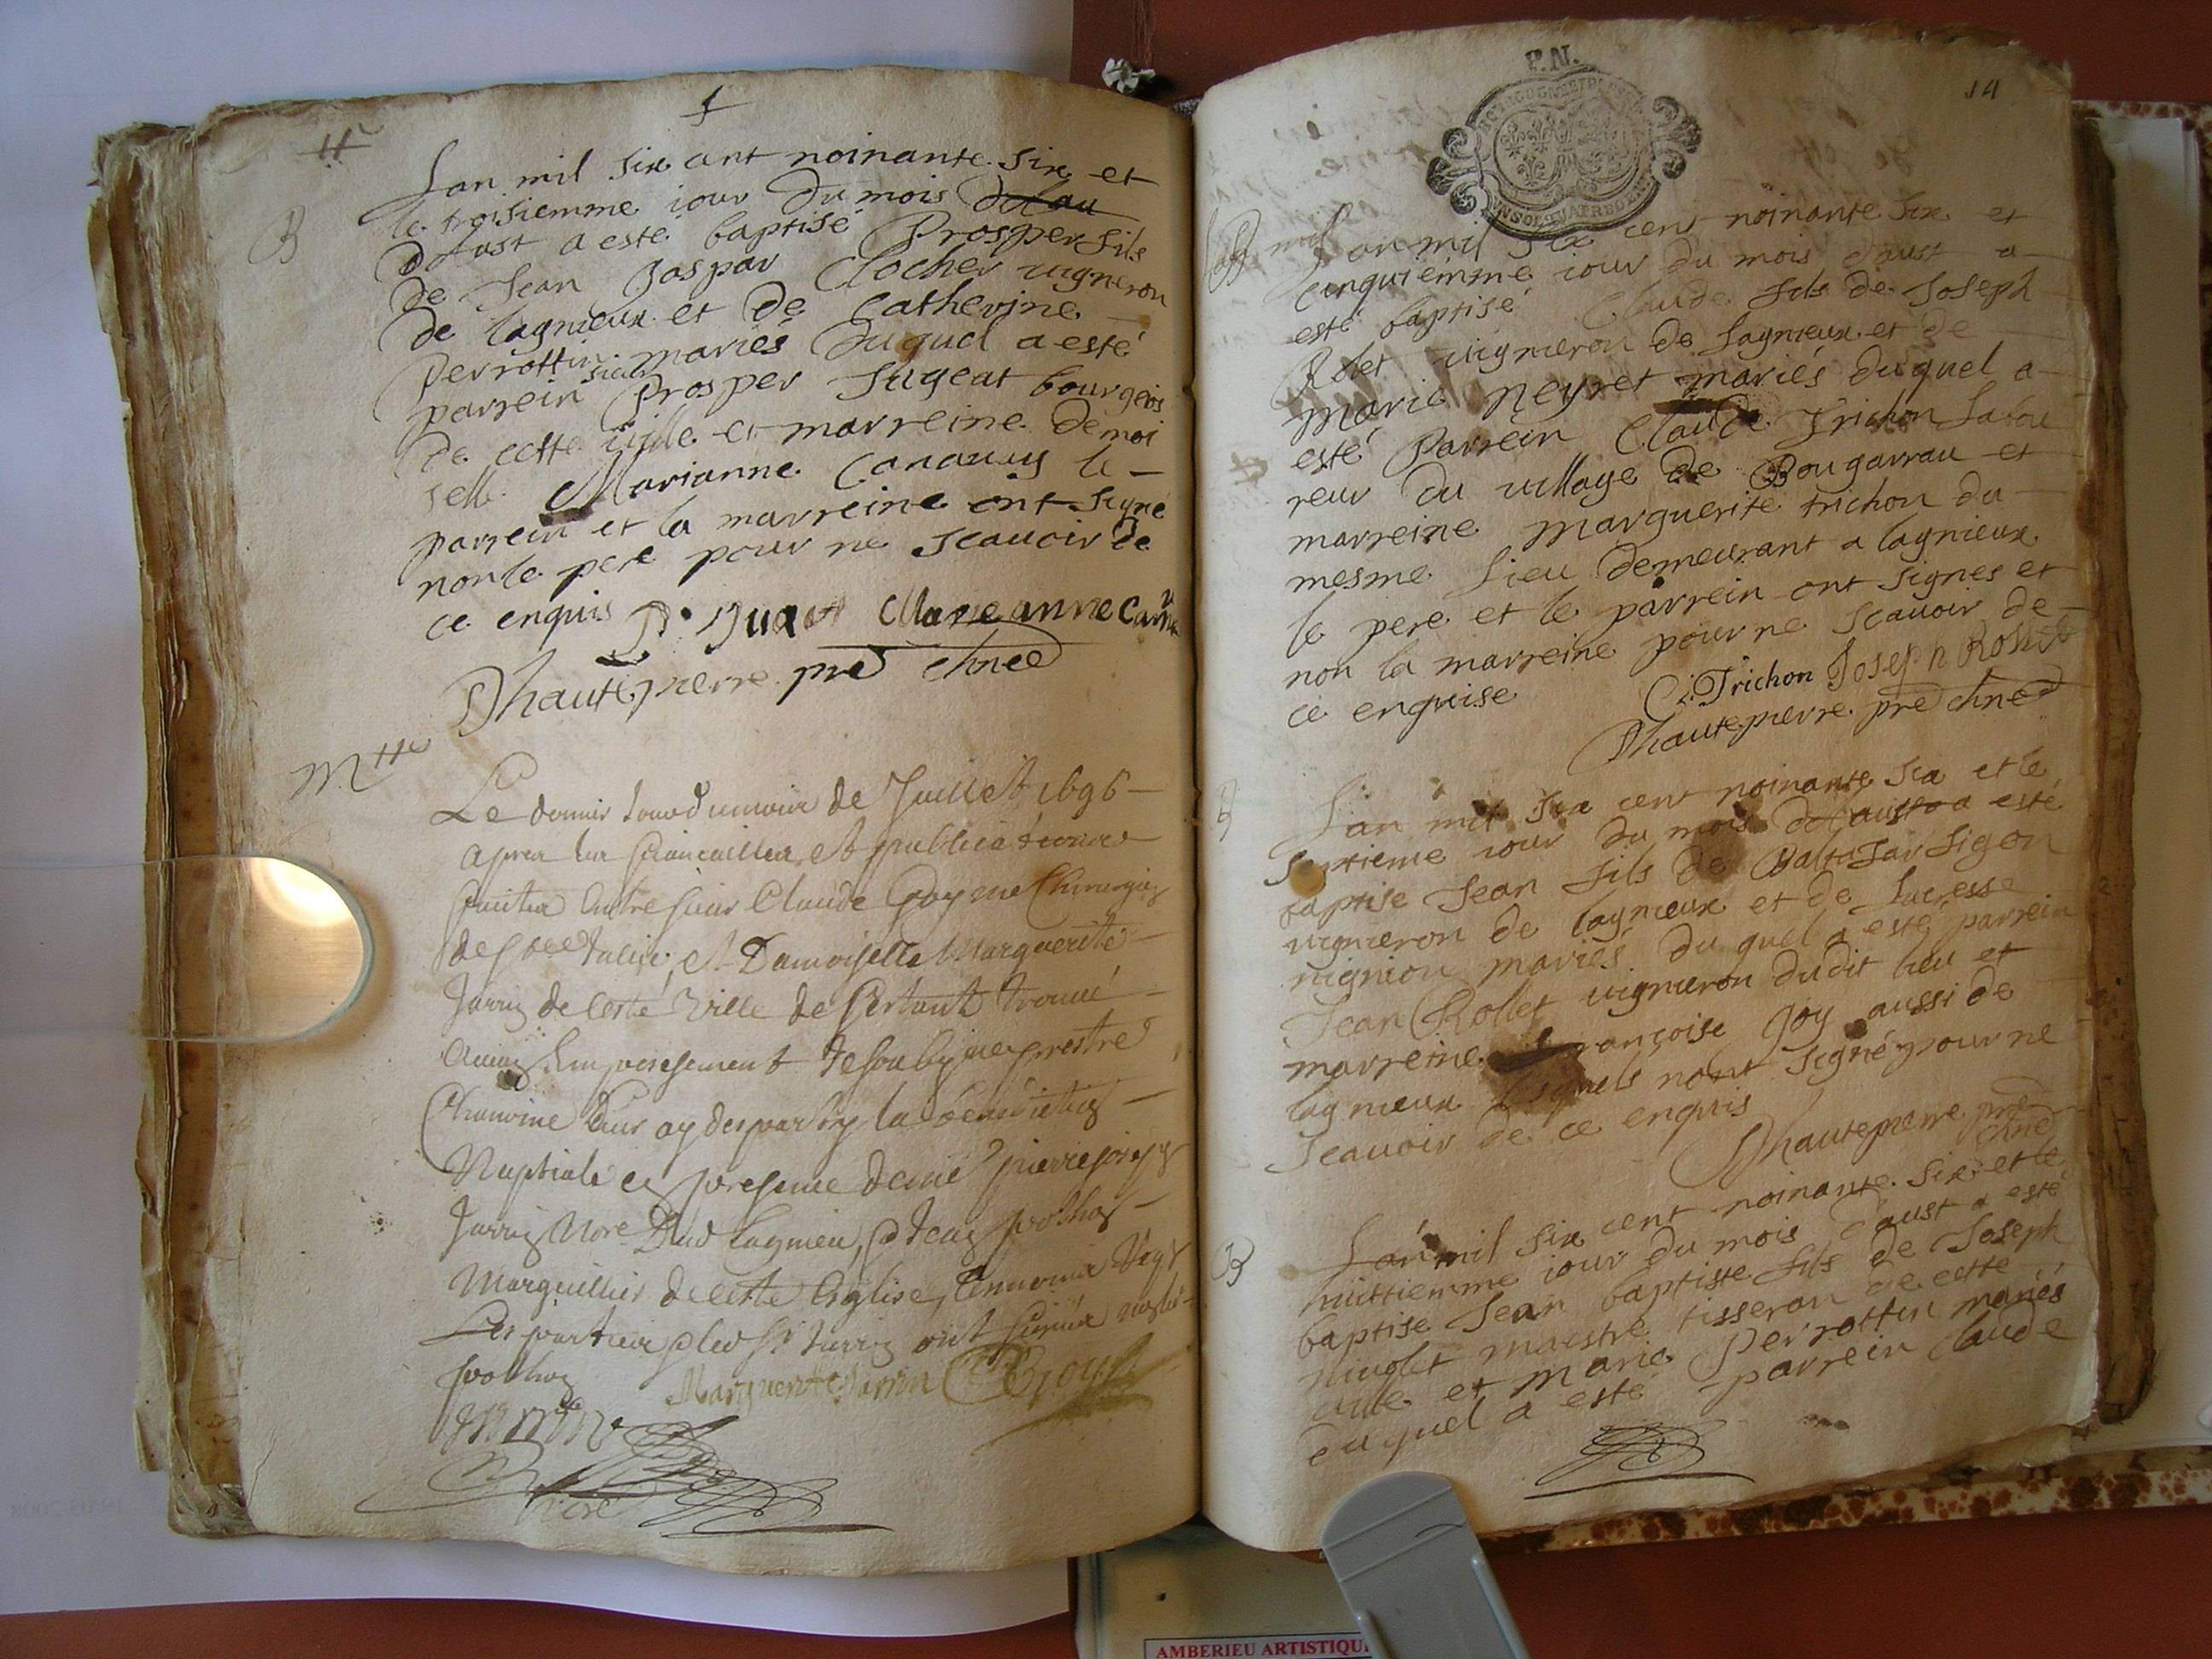 B
Lan mil six cent noinante six et
le troisiemme iour du mois
daust a esté baptisé Prosper fils
de Jean Gaspar Clocher vigneron
de lagnieux et de Catherine
Perrottin mariés duquel a esté
parrein sieur Prosper Jugeat bourgeois
de cette ville et marreine demoi
selle Marianne le
parrein et la marreine ont signé
non le pere pour ne scauoir de
ce enquis Marie anne
Dhautepierre pre chne
Le dernier Jour du mois de Juillet 1696
apres les fiancailles et publications
faittes Entre sieur Claude Goy me Chirurgien
et Damoiselle Marguerite
Jarrin de Ceste Ville ne s'estant trouué
aucun Empeschement Je soubsigné prestre
Chanoine Curé ay desparty la benediction
Nuptiale en presence de me pierre joseph
Jarrin Nore Dud Lagnieu, & Jean
Marguillier de cette Eglise,
Les parties & led Sr Jarrin ont signés
Marguerite Jarrin CGoy
Jarrin
P.N.
14
B
Lan mil six cent noinante six et
cinquiemme iour du mois daust a
esté baptisé Claude fils de Joseph
Rolet vignieron de Lagnieux et de
Marie Neyret mariés duquel a
esté Parrein Claude Trichon Labou
reur du village de Bougarrau et
marreine Marguerite trichon du
mesme lieu demeurant a lagnieux
le pere et le parrein ont signes et
non la marreine pour ne scauoir de
ce enquise C. Trichon Joseph
Dhautepierre pre chne
B
Lan mil six cent noinante six et le
septieme iour du mois daust a esté
baptise Jean fils de Baltasar Sigon
vignieron de lagnieux et de Lucresse
nignion mariés du quel a esté parrein
Jean Rollet vignieron dudit lieu et
marreine françoise Goy aussi de
lagnieux lesquels nont signé pour ne
scauoir de ce enquis
Dhautepierre pre
chne
B
Lan mil six cent noinante six et le
huittiemme iour du mois daust a esté
baptise Jean baptiste fils de Joseph
maistre tisseran de cette
ville et marie Perrottin mariés
duquel a esté parrein claude
AMBERIEU ARTISTIQU